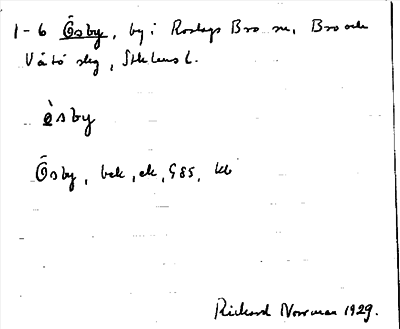 1-6 Ösby, by i Roslags Bro sn, Bro och
Vätö slg, Sthlms l.
ö̀sby
Ösby, bek, ek, G85, kb
Rickard Norrman 1929.